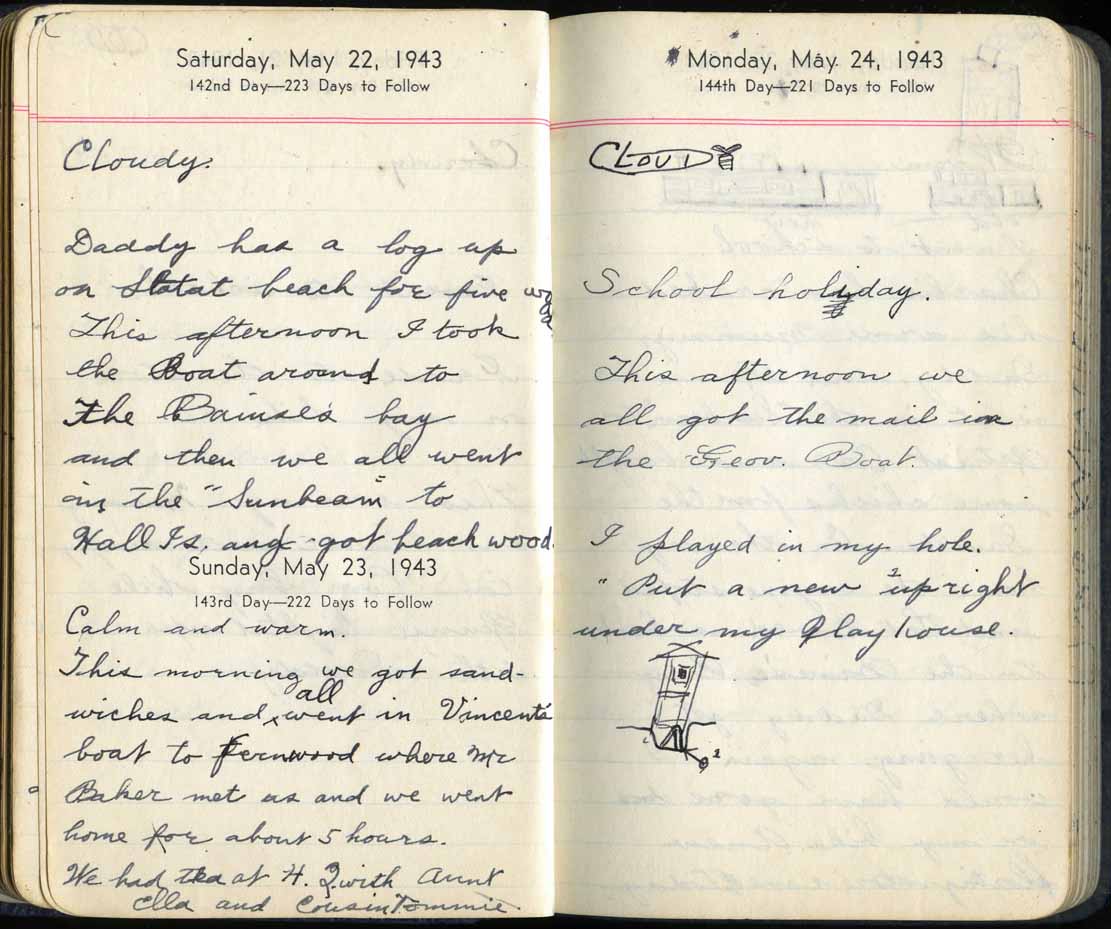 Saturday, May 22, 1943
142nd Day—223 Days to Follow
Cloudy.
Daddy has a log up
on Statat beach for five
This afternoon I took
the Boat around to
the bay
and then we all went
in the "Sunbeam" to
Hall Is. and got beach wood.
Sunday, May 23, 1943
143rd Day—222 Days to Follow
Calm and warm.
This morning we got sand-
wiches and all went in Vincent's
boat to Fernwood where Mr
Baker met us and we went
home for about 5 hours.
We had tea at H. Q with Aunt
Ella and Cousin Tommie.
Monday, May 24, 1943
144th Day—221 Days to Follow
CLOUD
School holiday.
This afternoon we
all got the mail in
the Geov. Boat.
I played in my hole.
" Put a new 1upright
under my playhouse.
1